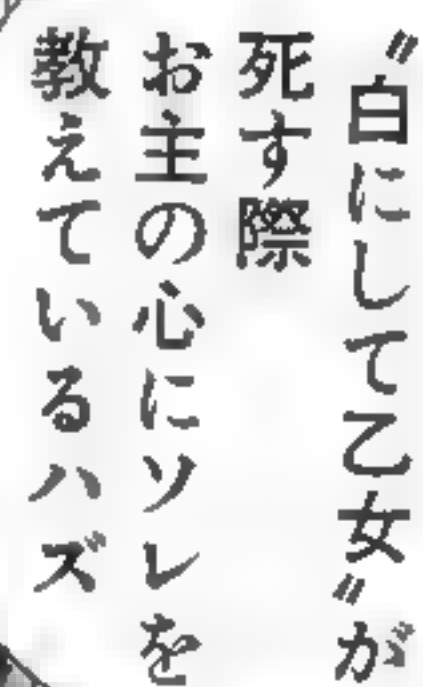 〝白にして乙女〟が
死す際
お主の心にソレを
教えているハズ